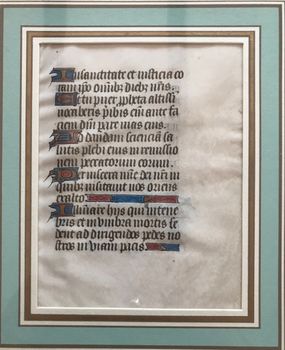 In sanctitate et iusticia co
ram ipo omib; dieb; nris.
Et tu puer ppheta altissi
mi vocaberis preibis eni ante fa
ciem dni parare vias eius.
Ad dandam scienciā sa
lutis plebi eius in remissio
nem peccatorum eorum.
Per viscera mie dei nri in
quib; visitauit nos oriens
ex alto
Illuminare hijs qui in tene
bris et in vmbra mortis se
dent ad dirigendos pedes no
stros in viam pacis